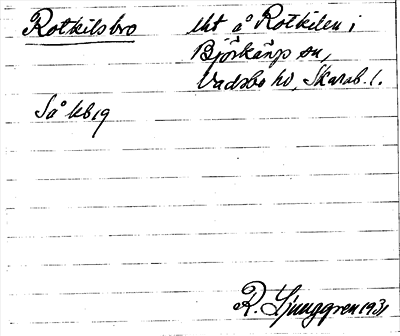 Rotkilsbro lht å Rotkilen i
Björkängs sn,
Vadsbo hd, Skarab. l.
Så kb 19
R. Ljunggren 1931